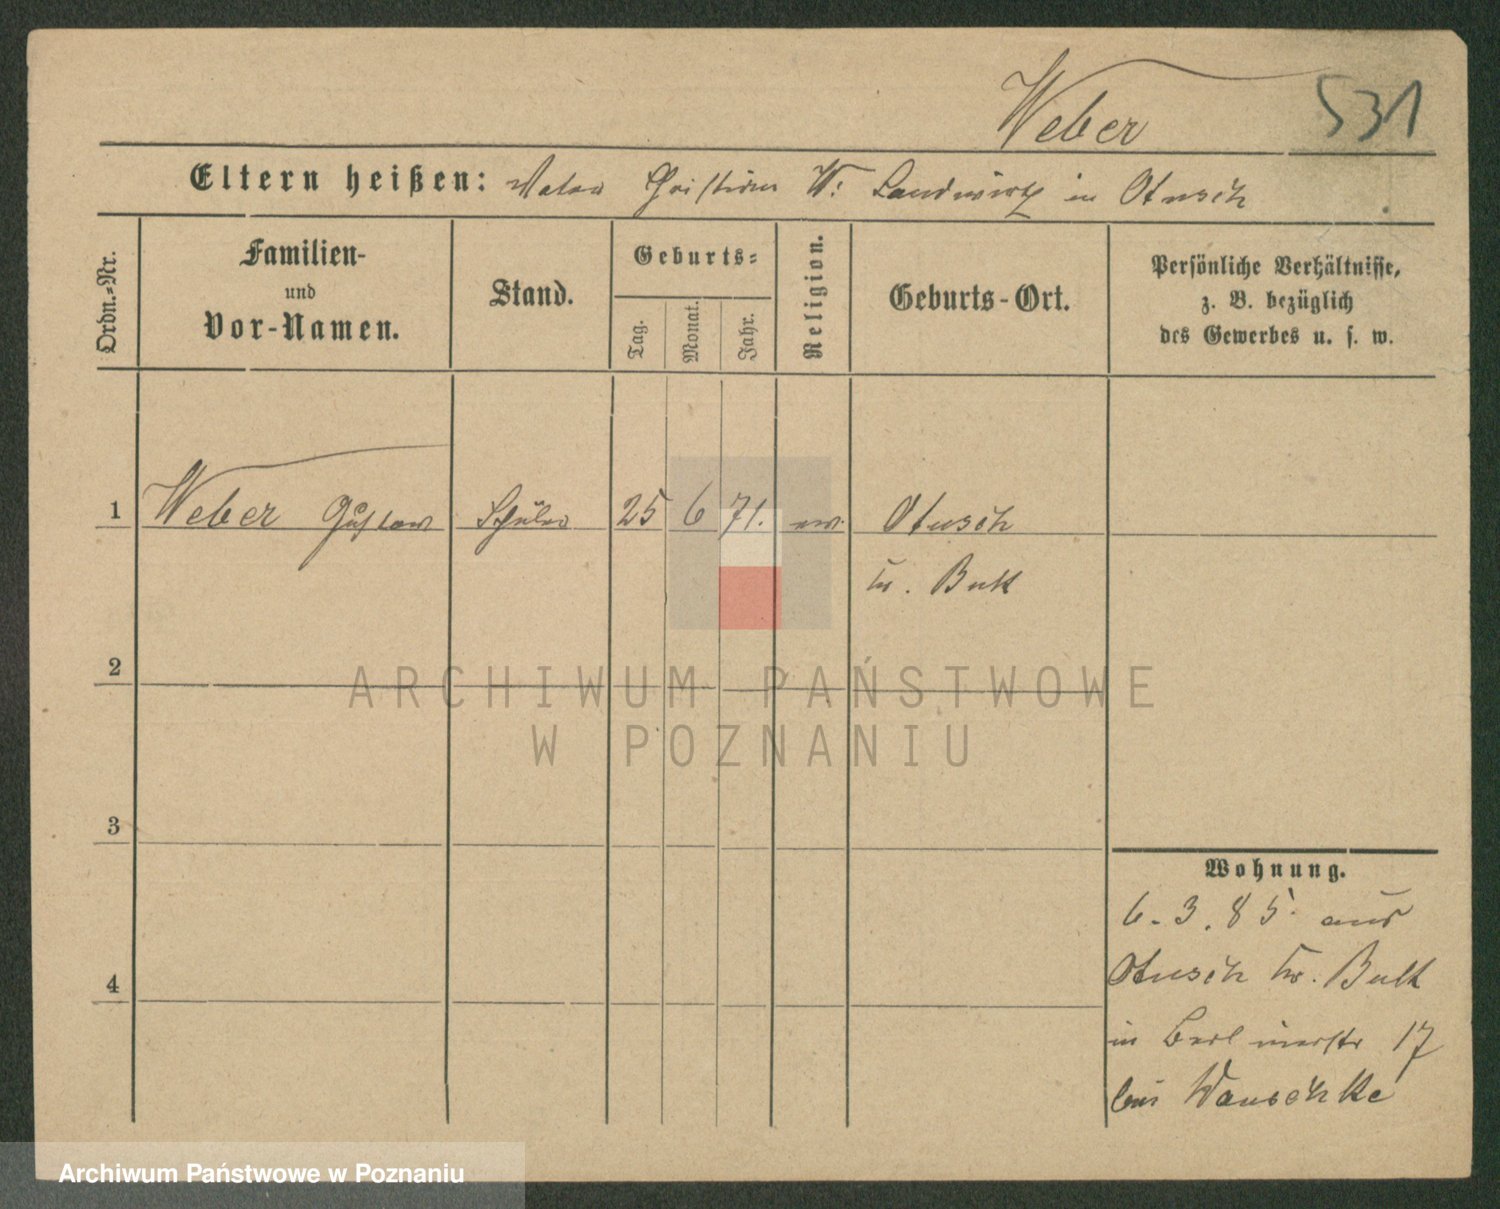 Weber 531
Eltern heißen: Vater Christian W: Landwirth in Otusch
Ordn.-Nr.
Familien-
und
Vor-Namen.
Stand.
Geburts-
Tag.
Monat.
Jahr.
Religion.
Geburts-Ort.
Persönliche Verhältnisse,
z. B. bezüglich
des Gewerbes u. s. w.
1 Weber Gustav Schüler 25 6 71. ev. Otusch
kr. Buk
2
ARCHIWUM PAŃSTWOWE
W POZNANIU
3
Wohnung.
6.3.85. aus
Otusch kr. Buk
4
in Berlinerstr 17
bei
Archiwum Państwowe w Poznaniu